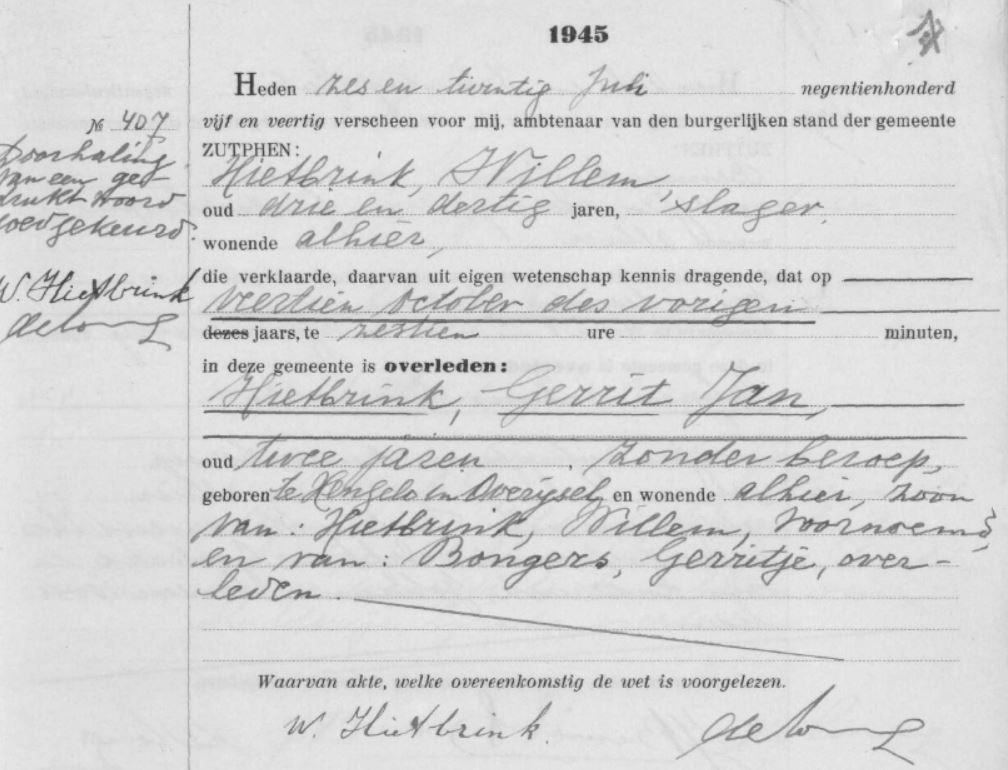 1945
Heden zes en twintig Juli negentienhonderd
vijf en veertig verscheen voor mij, ambtenaar van den burgerlijken stand der gemeente
ZUTPHEN:
Hietbrink, Willem,
oud drie en dertig jaren, slager,
wonende alhier,
die verklaarde, daarvan uit eigen wetenschap kennis dragende, dat op
veertien october des vorigen
dezes jaars, te zestien ure minuten,
in deze gemeente is overleden:
Hietbrink, Gerrit Jan,
oud twee jaren zonder beroep,
geboren te Hengelo in Overijsel, en wonende alhier, zoon
van: Hietbrink, Willem, voornoemd,
en van: Bongers, Gerritje, over-
leden.
Waarvan akte, welke overeenkomstig de wet is voorgelezen.
W. Hietbrink.
№ 407
Doorhaling
van een ged-
drukt woord
goedgekeurd.
W. Hietbrink